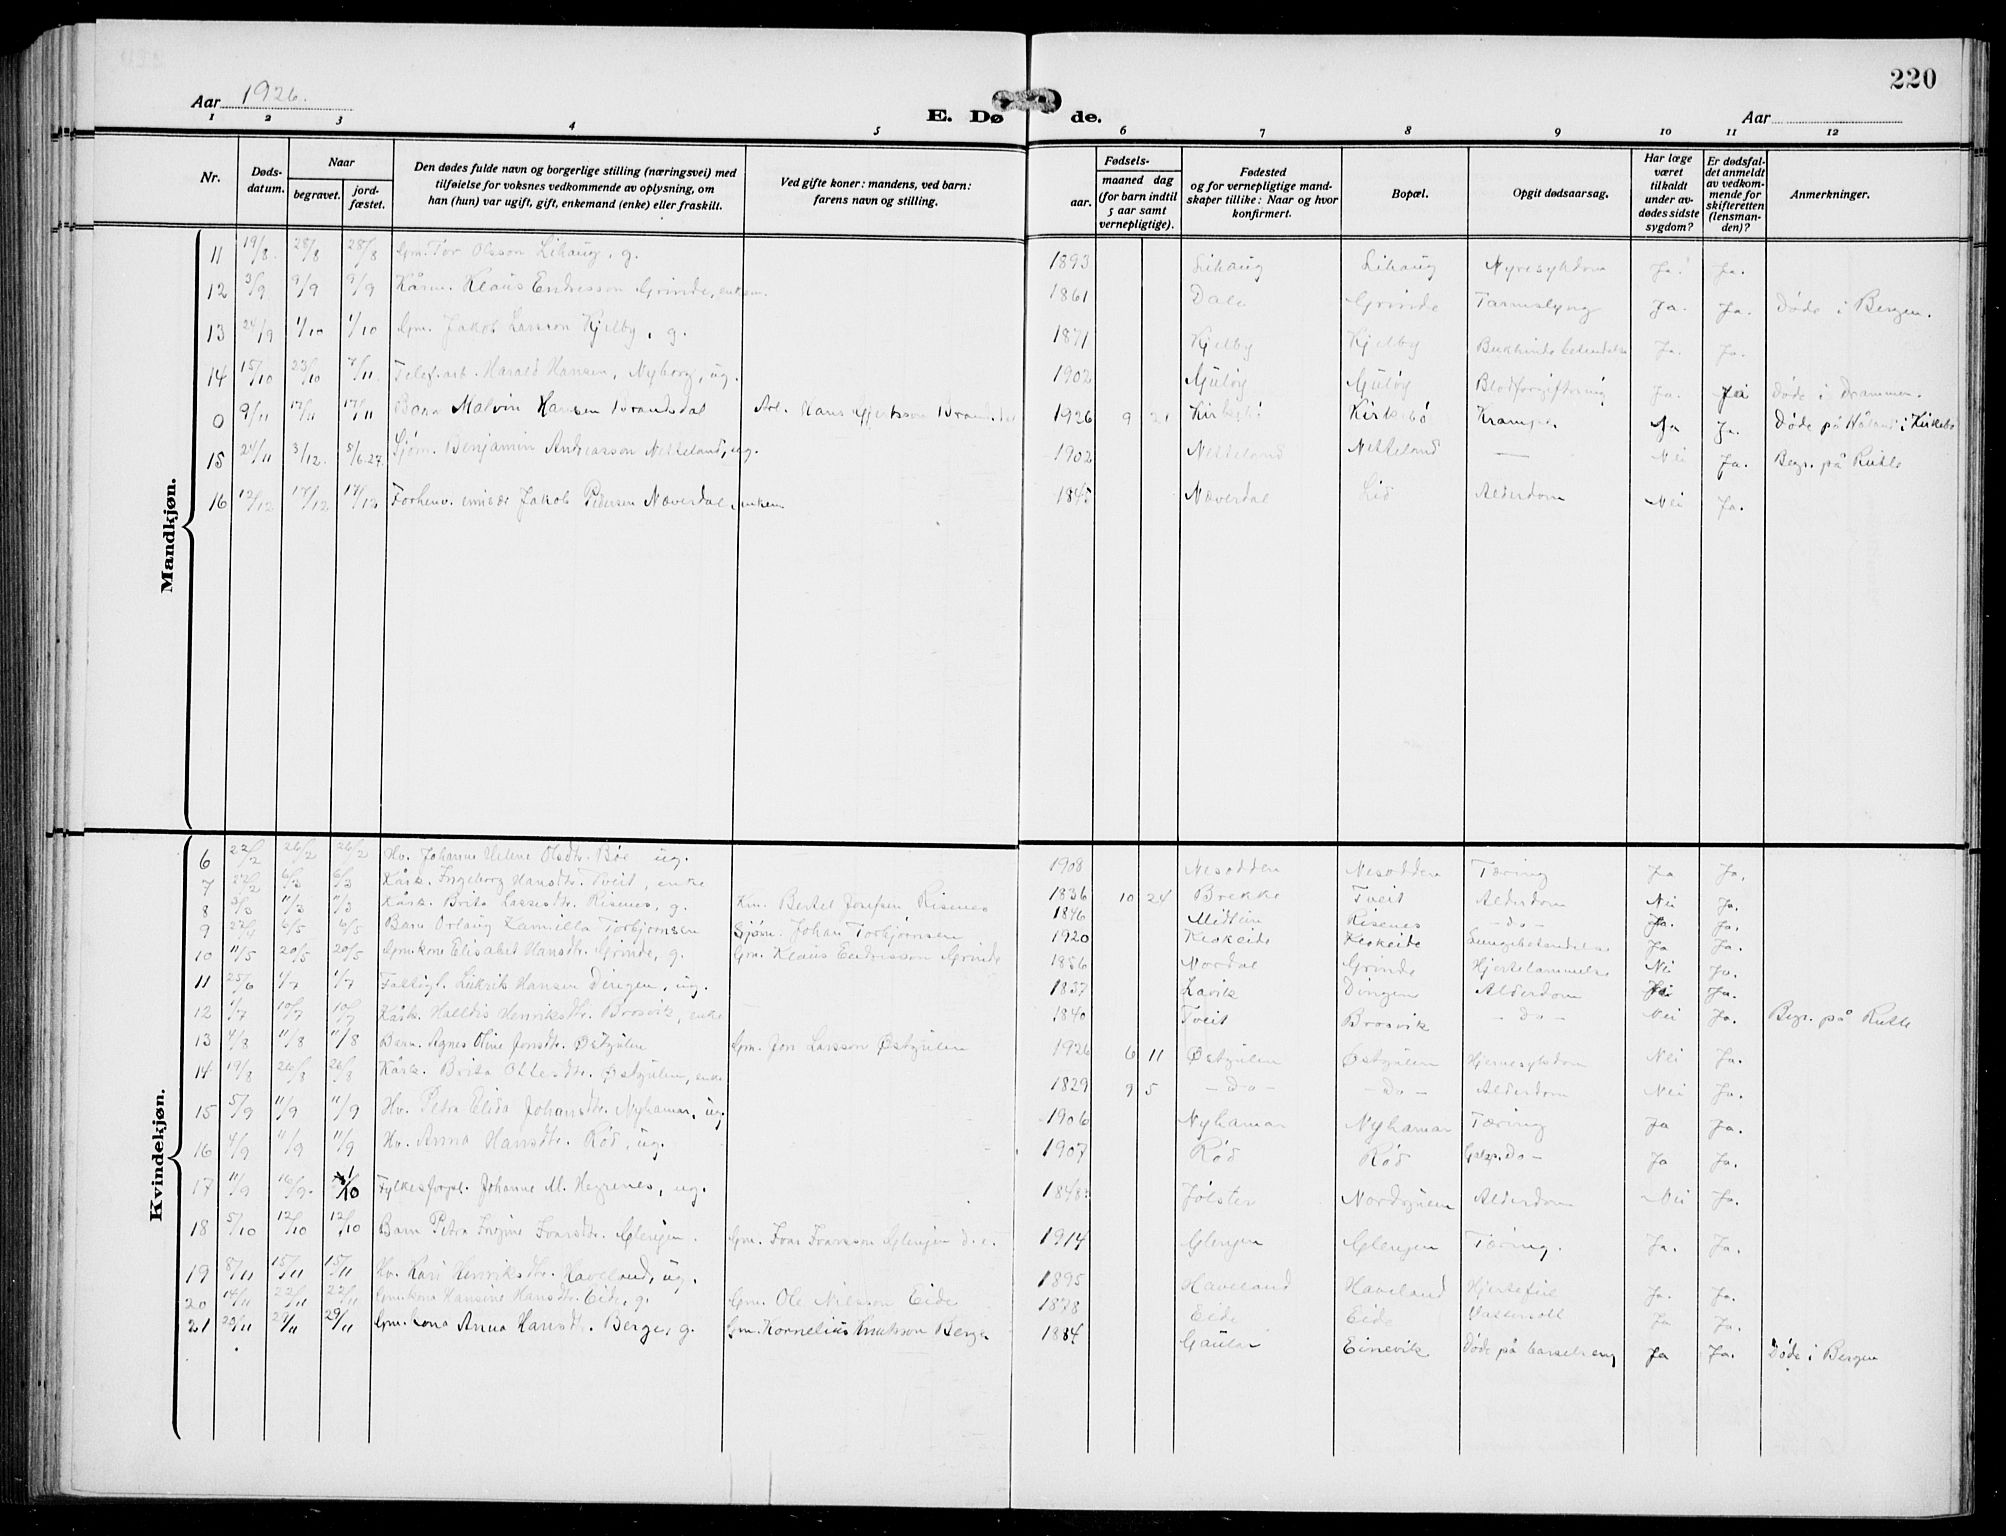 220
Aar 1926.
E. Dø de.
Aar
1 2 3 4 5 6 7 8 9 10 11 12
Nr.
Døds-datum.
Naar
begravet.
jord-fæstet.
Den dødes fulde navn og borgerlige stilling (næringsvei) med
tilføielse for voksnes vedkommende av oplysning, om
han (hun) var ugift, gift, enkemand (enke) eller fraskilt.
Ved gifte koner: mandens, ved barn:
farens navn og stilling.
Fødsels-
aar.
maaned dag
(for barn indtil
5 aar samt
vernepligtige).
Fødested
og for vernepligtige mand-
skaper tillike: Naar og hvor
konfirmert.
Bopæl.
Opgit dødsaarsag.
Har læge
været
tilkaldt
under av-
dødes sidste
sygdom?
Er dødsfal-
det anmeldt
av vedkom-
mende for
skifteretten
(lensman-
den)?
Anmerkninger.
Mandkjøn.
11 19/8 28/8 28/8 Gm. Tor Olsson Lihaug, g. 1893 Lihaug Lihaug Nyresykdom Ja. Ja.
12 3/9 9/9 9/9 Kårm. Klaus Endresson Grinde, enkem. 1861 Dale Grinde Tarmslyng Ja. Ja. Døde i Bergen.
13 24/9 1/10 1/10 Gm. Jakob Larsson Kjelby, g. 1871 Kjelby Kjelby Ja. Ja.
14 15/10 23/10 7/11 Telef.arb. Harald Hansen, Nyborg, ug. 1902 Blodforgiftning Ja. Ja Døde i Drammen.
0 9/11 17/11 17/11 Barn Malvin Hansen Brandsdal Arb. Hans 1926 9 21 Kirkebø Kirkebø Krampe. Ja Ja. Døde på Kirkebø
15 24/11 3/12. 5/6.27. Sjøm. Benjamin Andreasson Nesseland, ug. 1902 Nesseland Nesseland — Nei Ja. Begr. på Rutle
16 12/12 17/12 17/12 Forhenv. Jakob Pedersen Næverdal, enkem. 1845 Næverdal Lid Alderdom Nei Ja.
Kvindekjøn.
6 22/2 26/2 26/2 Hv. Johanne Helene Olsdtr. Bøe ug. 1908 Nesodden Nesodden Tæring Ja Ja.
7 27/2 6/3 6/3 Kårk. Ingeborg Hansdtr. Tveit, enke 1836 10 24 Brekke Tveit Alderdom Nei Ja.
8 3/3 11/3 11/3 Kårk. Brita Lassesdtr. Risenes, g. Km. Bertel Josefsen Risenes 1846 Midtun Risenes — do — Ja. Ja.
9 6/5 6/5 Barn Orlaug Kamilla Torbjørnsen Sjøm. Johan Torbjørnsen 1920 Keskeide Keskeide Lungebetændelse Ja Ja.
10 11/5 20/5 20/5 Gm.kone Elisabet Hansdtr. Grinde, g. Gm. Klaus Endresson Grinde 1856 Nordal Grinde Hjertelammelse Nei Ja.
11 25/6 1/7 1/7 Hansen Dingen, ug. 1837 Lavik Dingen Alderdom Ja.
12 1/7 10/7 10/7 Kårk. Halldis Henriksdtr. Brosvik, enke 1840 Tveit Brosvik — Do — Nei Ja. Begr. på Rutle
13 4/8 11/8 11/8 Barn. Agnes Oline Jonsdtr. Østgulen Gm. Jon Larsson Østgulen 1926 6 11 Østgulen Østgulen Hjernesykdom Nei Ja.
14 19/8 26/8 26/8 Kårk. Brita Ottesdtr. Østgulen, enke 1829 9 5 — Do — — Do — Alderdom Nei Ja.
15 5/9 11/9 11/9 Hv. Petra Elida Johansdtr. Nyhamar, ug. 1906 Nyhamar Nyhamar Tæring Ja Ja.
16 4/9 11/9 11/9 Hv. Anna Hansdtr. Rød, ug. 1907 Rød Rød Do — Ja Ja.
17 11/9 16/9. 1/10 Fylkesforpl. Johanne M. Heyrenes, ug. 1848 Jølster Nordgulen Alderdom Nei Ja.
18 5/10 12/10 12/10 Barn Petra Ingine Ivarsdtr. Glenjen. Gm. Ivar Ivarsson Glenjen d.e. 1914 Glenjen Glenjen Tæring. Ja. Ja.
19 8/11 15/11 15/11 Hv. Kari Henriksdtr. Haveland, ug. 1895 Haveland Haveland Hjertefeil Ja. Ja.
20 14/11 22/11 22/11 Gm.kona Hansine Hansdtr. Eide, g. Gm. Ole Nilsson Eide 1878 Eide Eide Vattersott Ja Ja.
21 22/11 29/11 29/11 Gm. kona Anna Hansdtr. Berge, g. Gm. Kornelius Knutsson Berge 1884 Gaular Einevik Døde på barselseng Ja Ja. Døde i Bergen